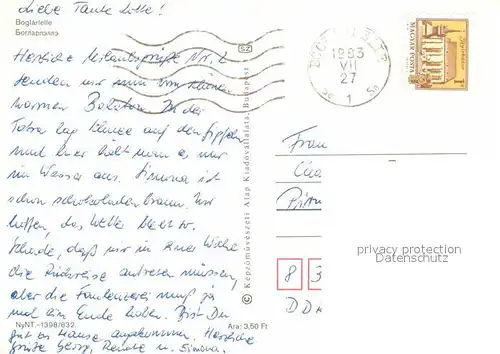 Liebe Tante Lotte!
Boglárlelle
Боглaрлэллэ
Herzliche Urlaubsgrüße Nr. 2
senden wir nun vom schönen
warmen Balaton. In der
Tatra lag Schnee auf den Gipfeln
und hier hält man es nur
im Wasser aus. Simona ist
schon schokoladenbraun. Wir
hoffen, das Wetter bleibt so.
Schade, daß wir in einer Woche
die Rückreise antreten müssen,
aber die Faulenzerei muß ja
mal ein Ende haben. Bist Du
gut zu Hause angekommen. Herzliche
Grüße Georg, Renate u. Simona.
NyNT.–1398/832.
Ára: 3,50 Ft
© Képzőművészeti Alap Kiadóvállalata, Budapest
SZ
1983
VII
27
1
MAGYAR POSTA
1 Ft
Frau
privacy protection
Datenschutz
8 3
DD